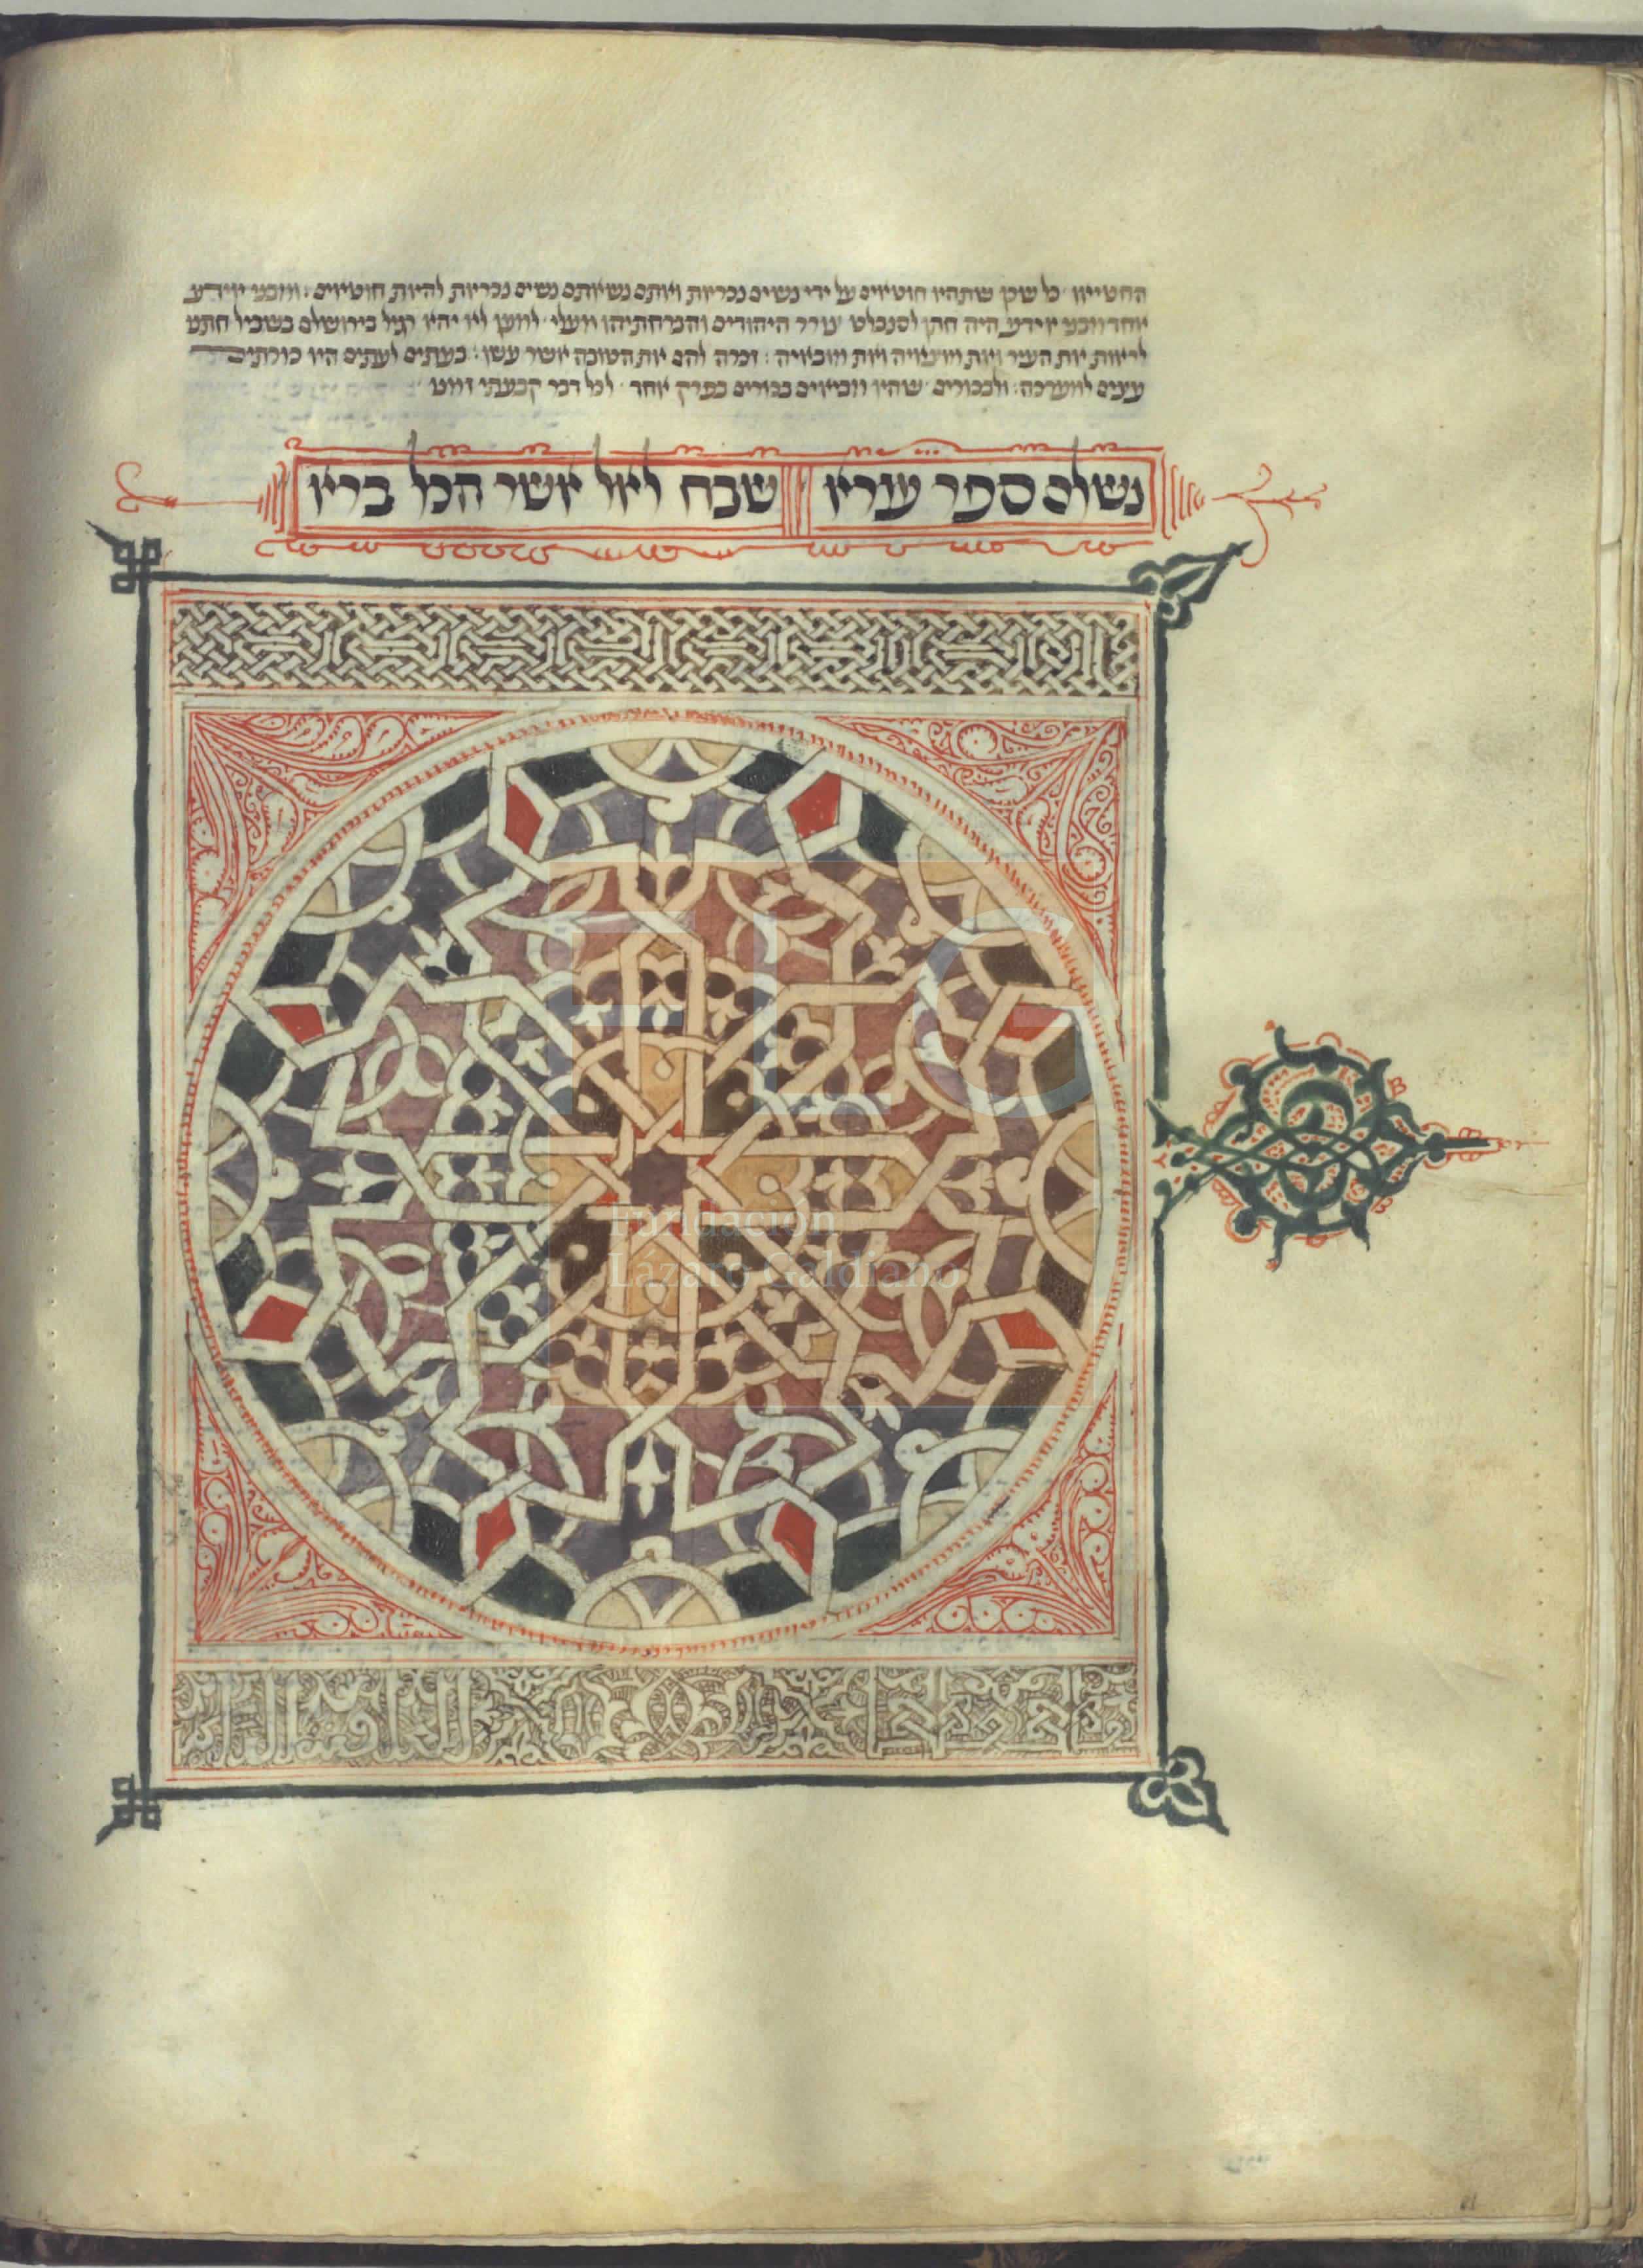 החטיאו כל שכן שתהיו חוטאים על ידי נשים נכריות ואתם נשאתם נשים נכריות להיות חוטאים: ומבני יוידע
אחד מבני יוידע היה חתן לסנבלט צורר היהודים והברחתיהו מעלי למען לא יהא רגיל בירושלם בשביל
לראות את העיר ואת מוצאיה ואת מובאיה: זכרה להם את הטובה אשר עשו: בעתים לעתים היו כורתים
עצים למערכה: ולבכורים שהיו מביאים בכורים בפרק אחד לכל דבר קבעתי
נשלם ספר עזרא שבח לאל אשר הכל ברא
FLG
Fundación
Lázaro Galdiano